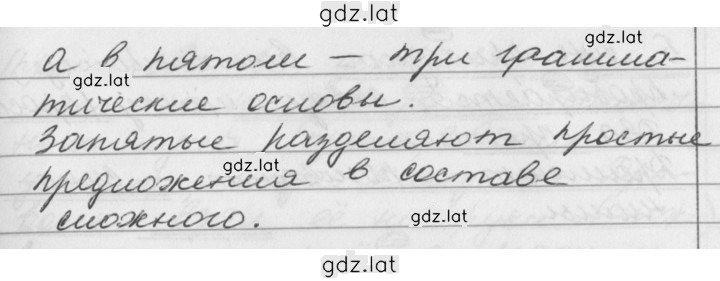 gdz.lat
а в пятом – три грамма-
gdz.lat
gdz.lat
тические основы.
Запятые разделяют простые
gdz.lat
предложения в составе
сложного.
gdz.lat
gdz.lat